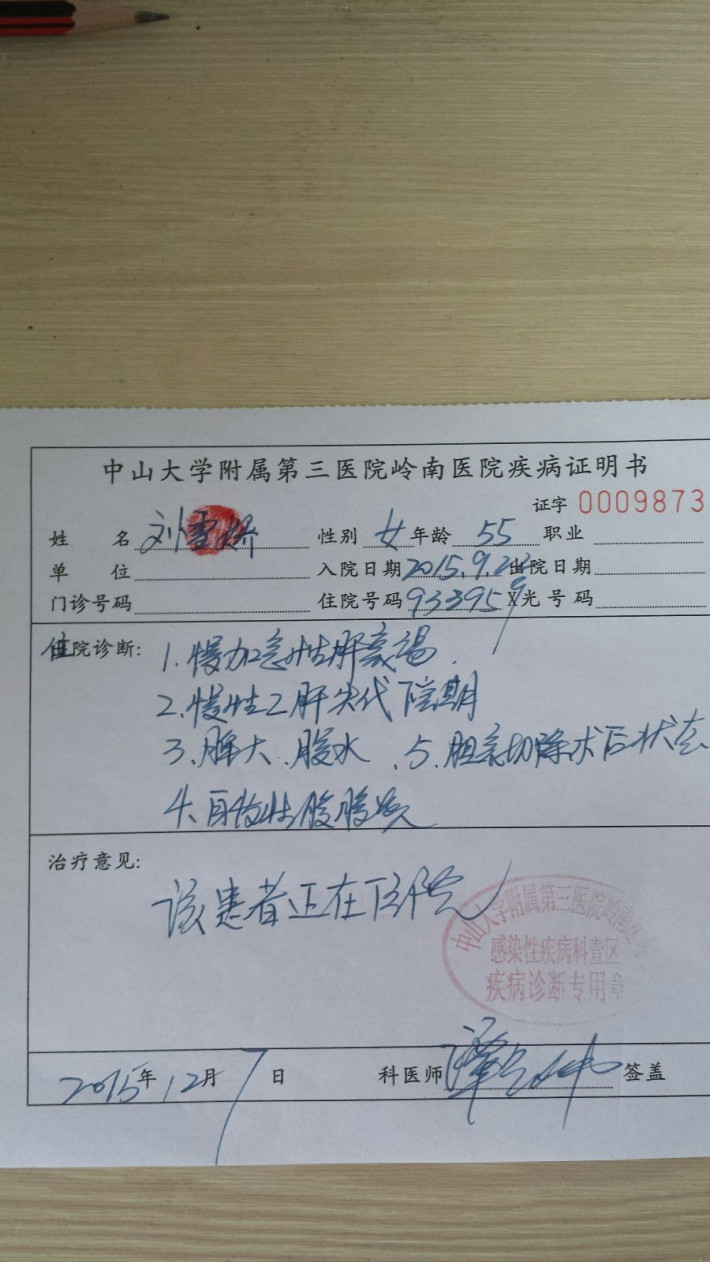 中山大学附属第三医院岭南医院疾病证明书
证字 0009873
姓 名 刘雪娇 性别 女 年龄 55 职业
单 位 入院日期 2015.9.22 出院日期
门诊号码 住院号码 933959 X光号码
住院诊断: 1.慢加急性肝衰竭.
2.慢性乙肝失代偿期
3.脾大、腹水 .5.胆囊切除术后状态
4.自发性腹膜炎
治疗意见:
该患者正在住院
中山大学附属第三医院岭南医院
感染性疾病科壹区
疾病诊断专用章
2015年12月7日 科医师 签盖